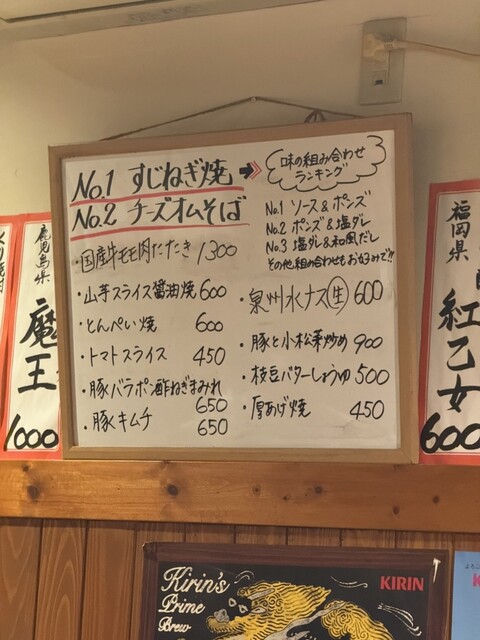 No.1 すじねぎ焼
No.2 チーズオムそば
味の組み合わせ
ランキング
No.1 ソース&ポンズ
No.2 ポンズ&塩ダレ
No.3 塩ダレ&和風だし
その他組み合わせもお好みで!!
・国産牛モモ肉たたき 1300
・山芋スライス醤油焼 600
・とんぺい焼 600
・トマトスライス 450
・豚バラポン酢ねぎまみれ 650
・豚キムチ 650
・泉州水ナス(生) 600
・豚と小松菜炒め 900
・枝豆バターしょうゆ 500
・厚あげ焼 450
鹿児島県
魔王
1000
福岡県
紅乙女
600
Kirin's
Prime
Brew
KIRIN